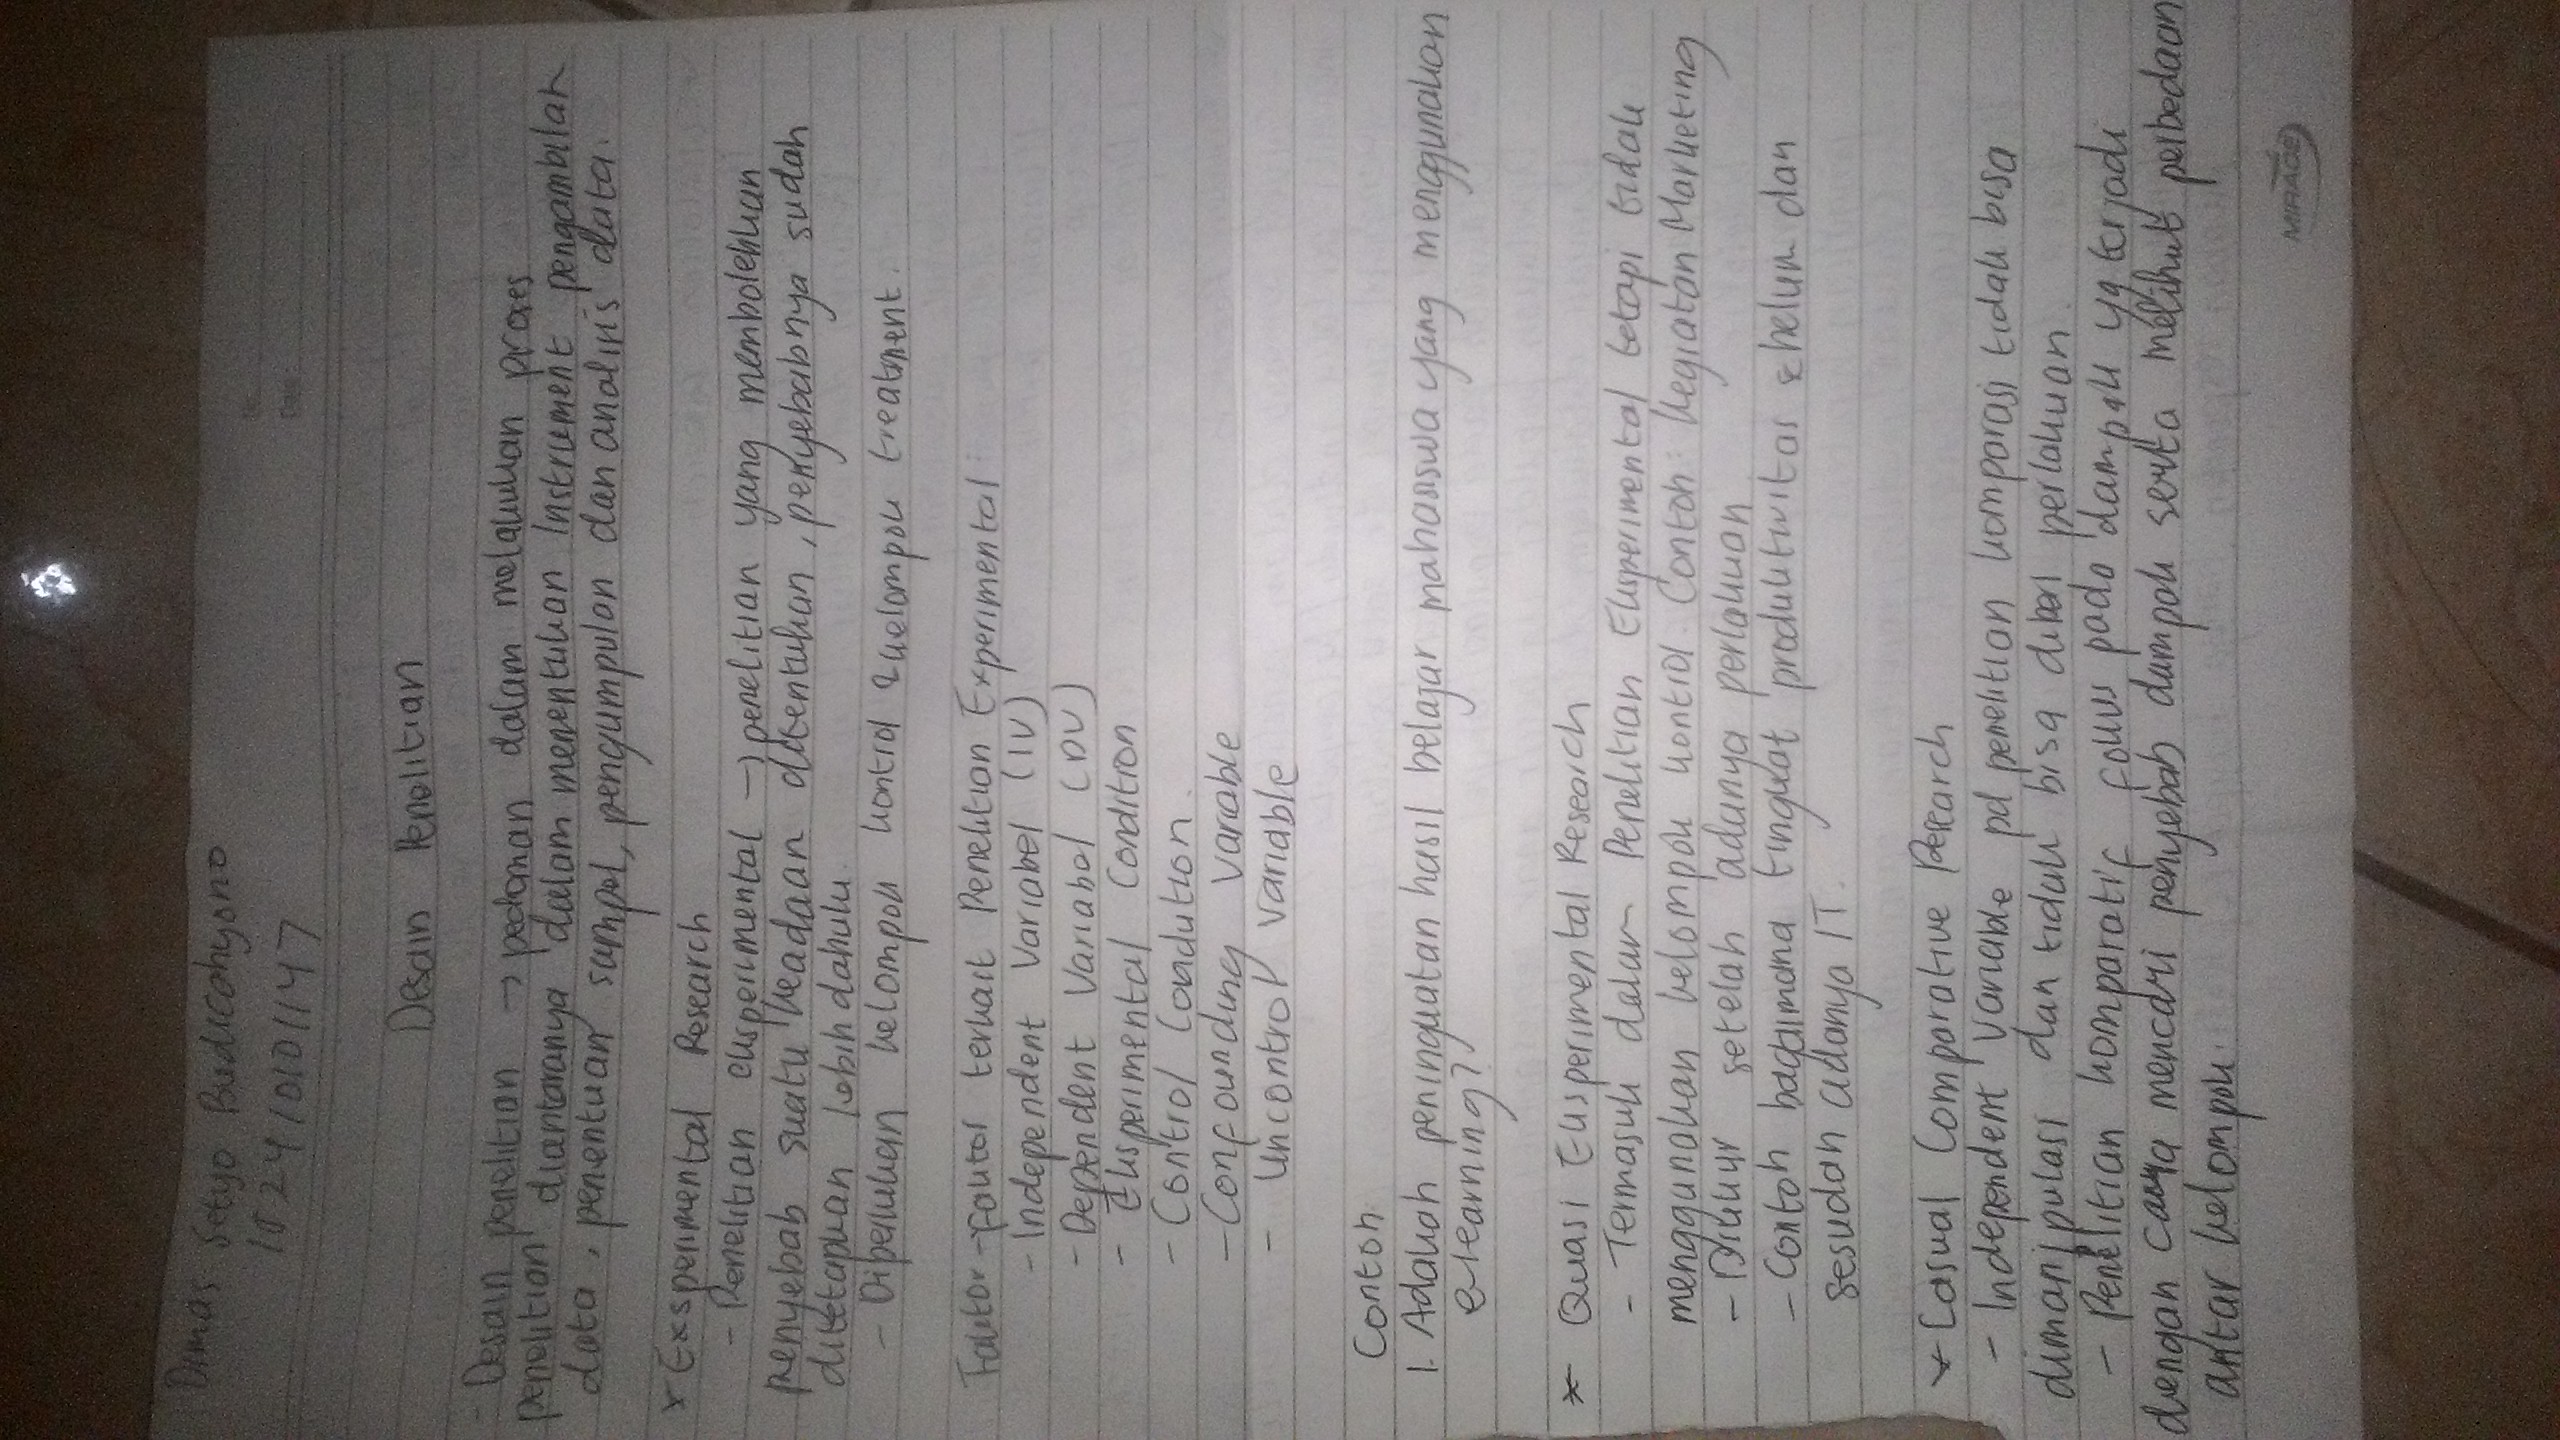 Dimas Setyo Budicahyono
152410101147
No
Date
Desain Penelitian
- Desain penelitian → pedoman dalam melakukan proses
penelitian diantaranya dalam menentukan Instrument pengambilan
data, penentuan sampel, pengumpulan dan analisis data.
* Exsperimental Research
- Penelitian eksperimental → penelitian yang membolehkan
penyebab suatu keadaan ditentukan, penyebabnya sudah
ditetapkan lebih dahulu.
- Diperlukan kelompok kontrol & kelompok treatment.
Faktor-faktor terkait Penelitian Experimental:
- Independent Variabel (IV)
- Dependent Variabel (DV)
- Eksperimental Condition
- Control Condution.
- Confounding Variable
- Uncontrol Variable
Contoh
1. Adakah peningkatan hasil belajar mahasiswa yang menggunakan
e-learning?
* Quasi Eksperimental Research
- Termasuk dalam Penelitian Eksperimental tetapi tidak
menggunakan kelompok kontrol. Contoh: Kegiatan Marketing
- Diukur setelah adanya perlakuan
- Contoh bagaimana tingkat produktivitas sebelum dan
sesudah adanya IT.
* Casual Comparative Research
- Independent Variable pd penelitian komparasi tidak bisa
dimanipulasi dan tidak bisa diberi perlakuan.
- Penelitian komparatif fokus pada dampak yg terjadi
dengan cara mencari penyebab dampak serta melihat perbedaan
antar kelompok.
MIRAGE